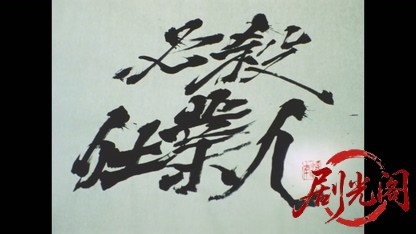 必殺
仕業人
剧光阁